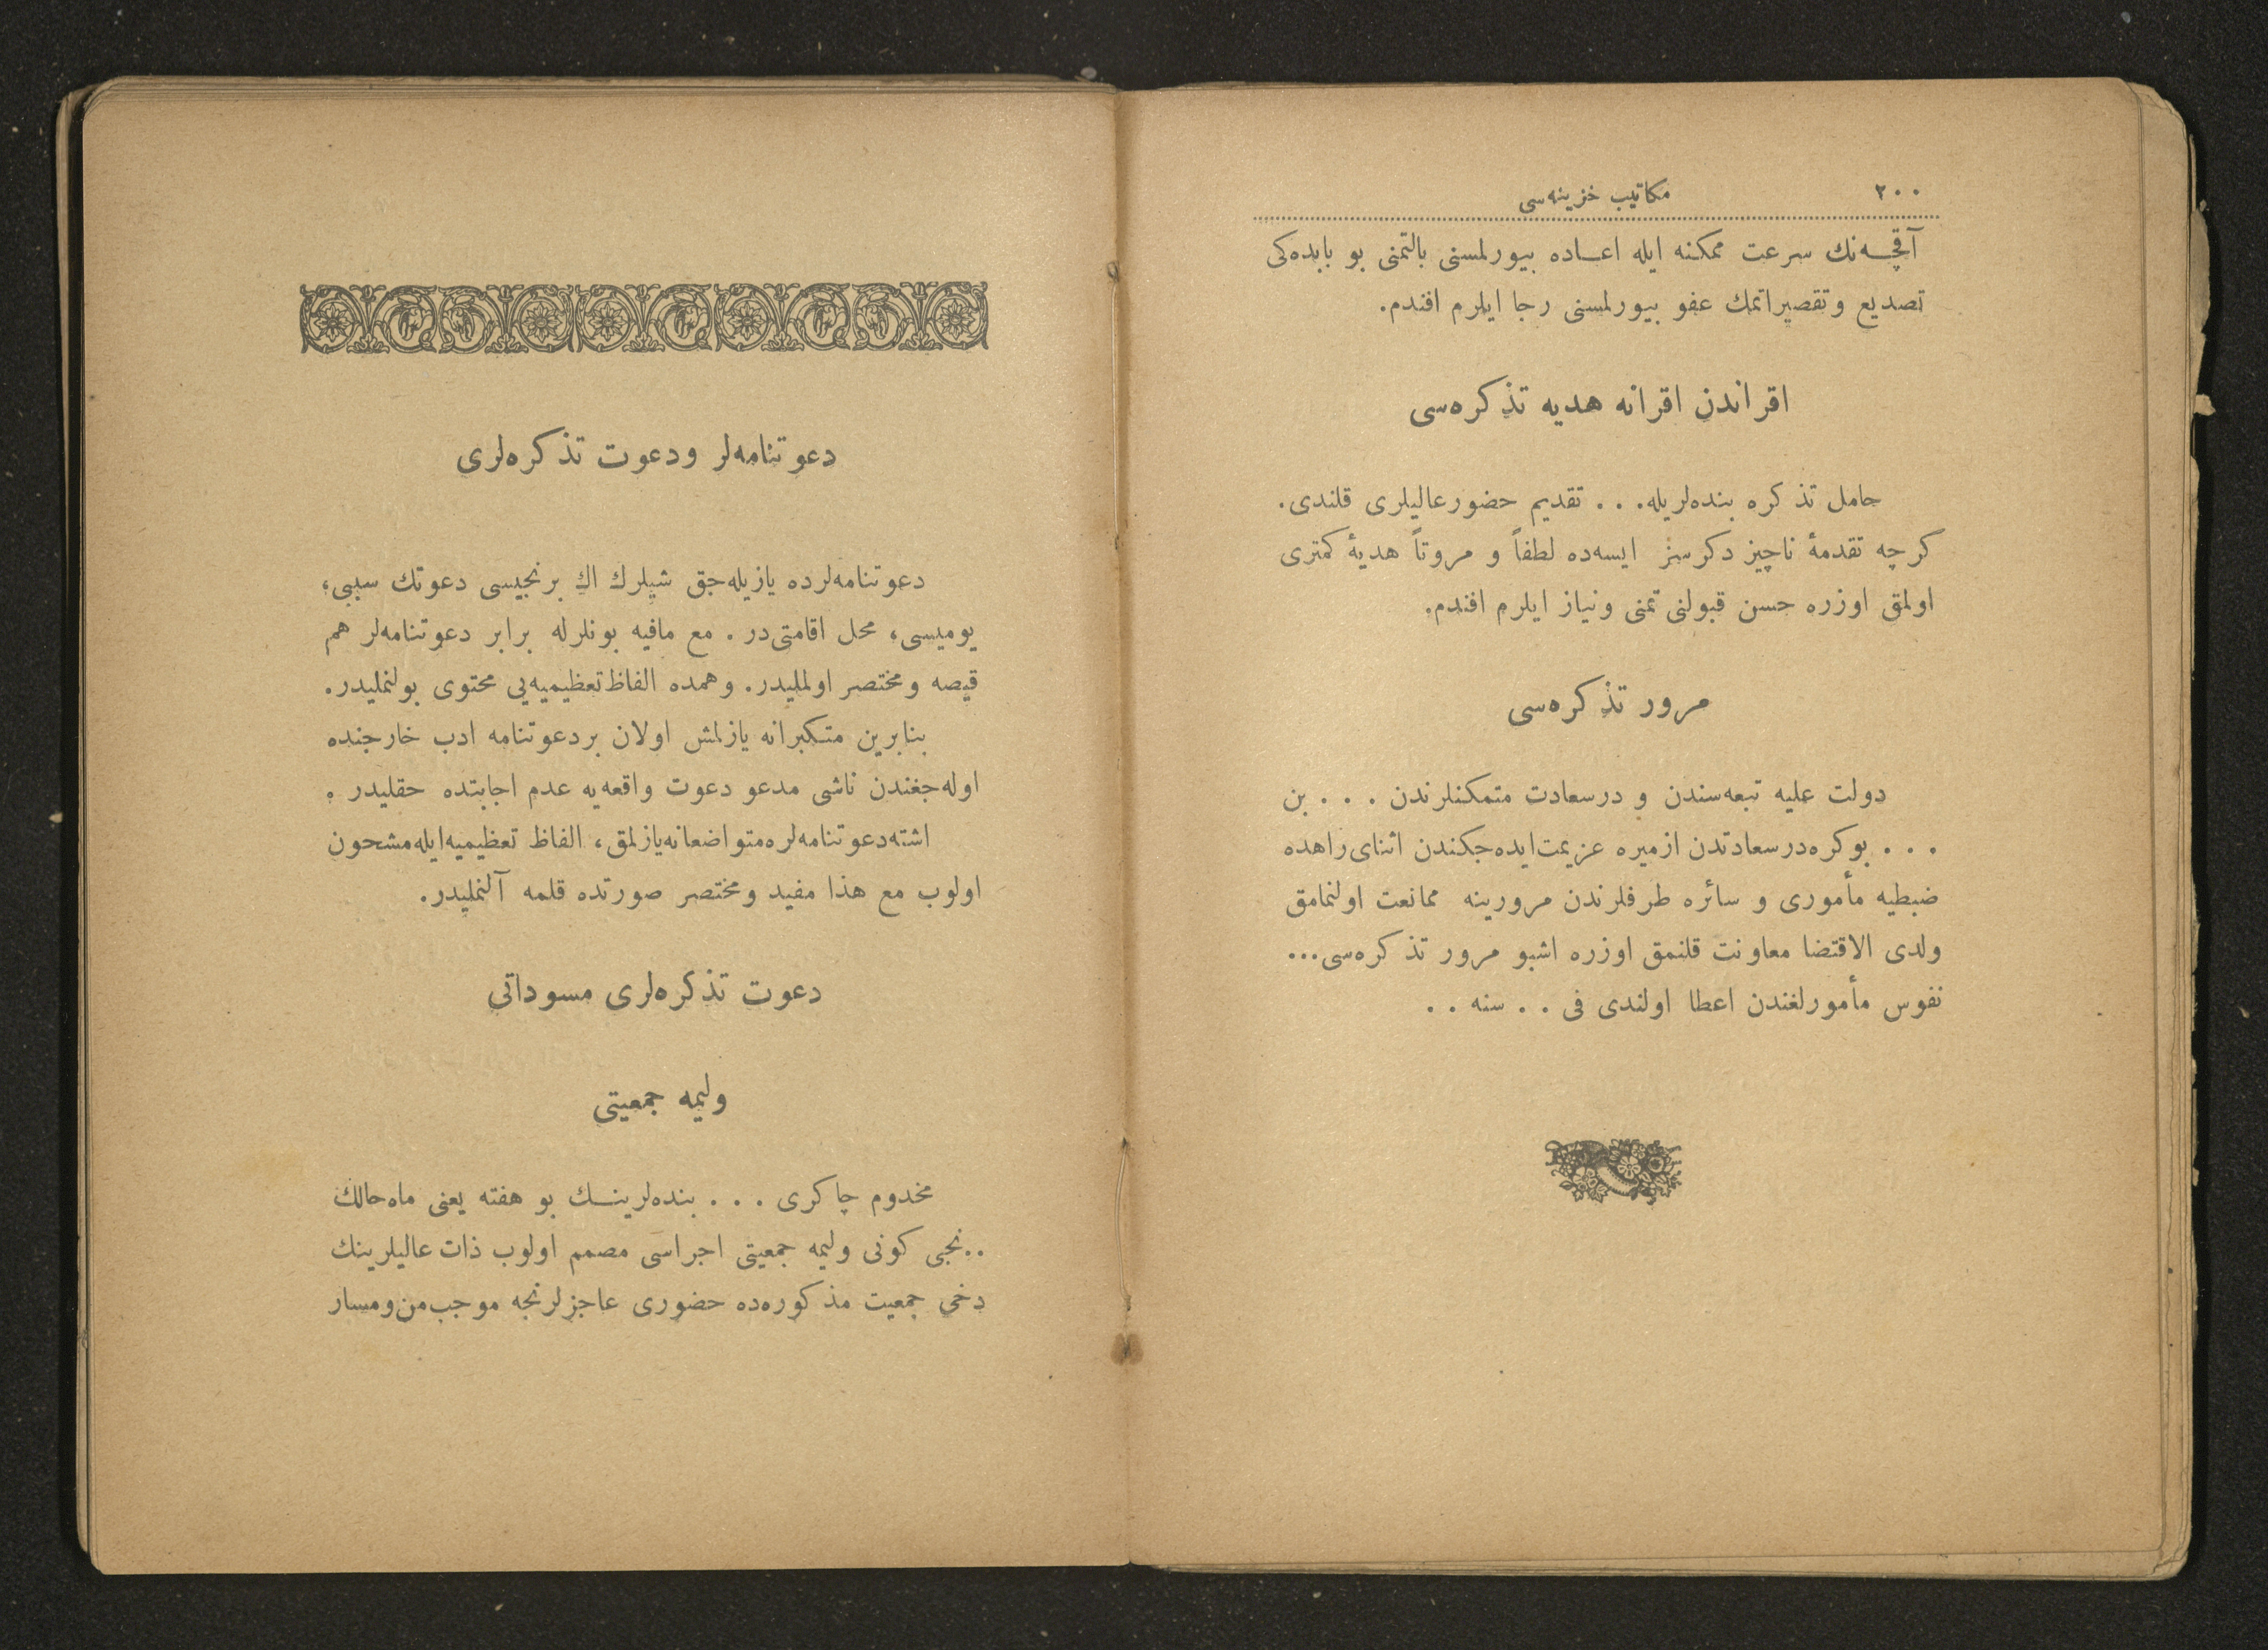 ٢٠٠
مكاتيب خزينه‌سى
آقچه‌نك سرعت ممكنه ايله اعاده بيورلمسنى بالتمنى بو بابده‌كى
تصديع وتقصيراتمك عفو بيورلمسنى رجا ايلرم افندم.
اقراندن اقرانه هديه تذكره‌سى
حامل تذكره بنده‌لريله. . . تقديم حضورعاليلرى قلندى.
كرچه تقدمهٔ ناچيز دكرسز ايسه‌ده لطفاً و مروتاً هديهٔ كمترى
اولمق اوزره حسن قبولنى تمنى ونياز ايلرم افندم.
مرور تذكره‌سى
دولت عليه تبعه‌سندن و درسعادت متمكنلرندن . . . بن
. . . بوكره‌درسعادتدن ازميره عزيمت‌ايده‌جكندن اثناى‌راهده
ضبطيه مأمورى و سائره طرفلرندن مرورينه ممانعت اولنمامق
ولدى الاقتضا معاونت قلنمق اوزره اشبو مرور تذكره‌سى...
نفوس مأمورلغندن اعطا اولندى فى . . سنه . .
دعوتنامه‌لر ودعوت تذكره‌لرى
دعوتنامه‌لرده يازيله‌جق شيلرك اك برنجيسى دعوتك سببى،
يوميسى، محل اقامتى‌در . مع مافيه بونلرله برابر دعوتنامه‌لر هم
قيصه ومختصر اولمليدر. وهمده الفاظ‌تعظيميه‌يى محتوى بولنمليدر.
بنابرين متكبرانه يازلمش اولان بردعوتنامه ادب خارجنده
اوله‌جغندن ناشى مدعو دعوت واقعه‌يه عدم اجابتده حقليدر .
اشته‌دعوتنامه‌لره‌متواضعانه‌يازلمق، الفاظ تعظيميه‌ايله‌مشحون
اولوب مع هذا مفيد ومختصر صورتده قلمه آلنمليدر.
دعوت تذكره‌لرى مسوداتى
وليمه جمعيتى
مخدوم چاكرى . . . بنده‌لرينك بو هفته يعنى ماه‌حالك
..نجى كونى وليمه جمعيتى اجراسى مصمم اولوب ذات عاليلرينك
دخى جمعيت مذكوره‌ده حضورى عاجزلرنجه موجب‌من‌ومسار